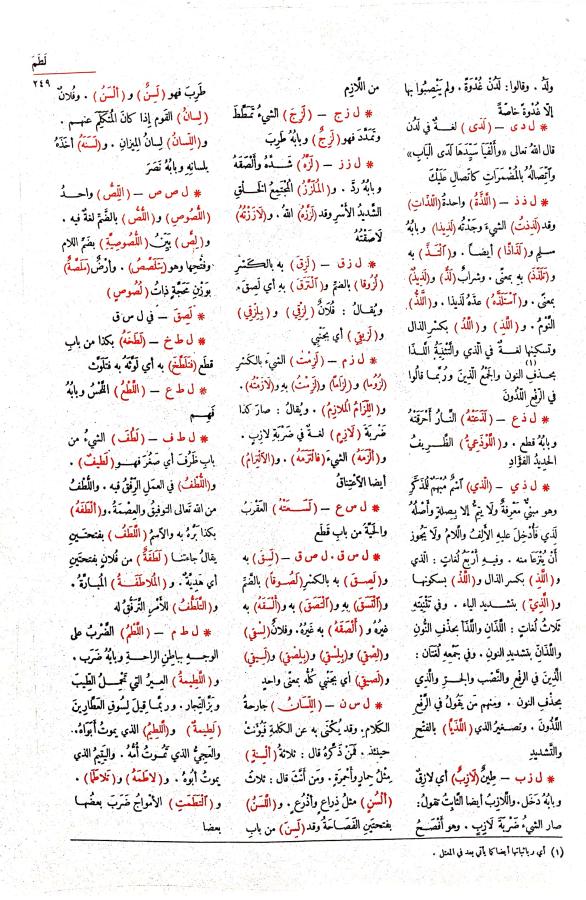 لَطَمَ
٢٤٩
ولَدُ . وقالوا: لَدُنْ غُدْوَةً . ولم يَنْصِبُوا بها
إلّا غُدْوةً خاصّةً
* ل د ى – (لَدَى) لغةٌ في لَدُن
قال اللهُ تعالى «وأَلْفَيا سَيِّدَها لَدَى البَابِ»
واتِّصالُهُ بالمُضْمَراتِ كاتِّصالِ عَلَيْكَ
* ل ذ ذ – (اللَّذَّةُ) واحدةُ (اللَّذَّاتِ)
وقد (لَذِذتُ) الشيءَ وجَدْتُه (لَذِيذا) وبابُهُ
سلِم و(لَذَاذًا) أيضا . و(الْتَذَّ) به
و(تَلَذَّذَ) به بمعنًى . وشرابٌ (لَذٌّ) و(لَذِيذٌ)
بمعنًى . و(اسْتَلَذَّهُ) عدّهُ لذيذا . و(اللَّذُّ)
النَّوْمُ . و(اللَّذِ) و(اللَّذْ) بكسرِ الذالِ
وتسكينِها لغةٌ في الّذي والتَّثْنِيَةُ اللَّذَا
بحذفِ النون والجمْعُ الّذينَ ورُبّما قالُوا (١)
في الرّفْعِ اللَّذُونَ
* ل ذ ع – (لَذَعَتْهُ) النّارُ أَحْرَقَتْهُ
وبابُهُ قطع . و(اللَّوْذَعِيُّ) الظَّرِيفُ
الحَدِيدُ الفُؤَادِ
* ل ذ ي – (الّذي) اسْمٌ مُبْهَمٌ للمُذَكَّرِ
وهو مبنيٌّ مَعْرِفةٌ ولا يَتِمُّ إلّا بِصِلةٍ وأصْلُهُ
لَذِي فأُدْخِلَ عليهِ الأَلِفُ واللّامُ ولا يجوزُ
أنْ يُنْزَعَا منه . وفيهِ أربَعُ لُغاتٍ : الّذي
و(اللَّذِ) بكسرِ الذال و(اللَّذْ) بسكونها
و(الّذِيّ) بتشديد الياء . وفي تَثْنِيَتِهِ
ثلاثُ لُغاتٍ : اللَّذَانِ واللَّذَا بحذفِ النُّونِ
واللَّذَانِّ بتشديدِ النونِ . وفي جمْعِهِ لُغَتان :
الّذينَ في الرفْعِ والنَّصْبِ والجرِّ والّذي
بحذفِ النون . ومنهم من يَقُولُ في الرَّفْعِ
اللَّذُونَ . وتصغيرُ الذي (اللَّذَيَّا) بالفَتْحِ
والتَّشْدِيدِ
* ل ز ب – طِينٌ (لازِبٌ) أي لازِقٌ
وبابُهُ دَخَل . واللّازِبُ أيضا الثّابتُ تقولُ:
صار الشيءُ ضَرْبَةَ لازِبٍ . وهو أَفْصَحُ
من اللّازِمِ
* ل ز ج – (لَزِجَ) الشيءُ تَمَطَّطَ
وتَمَدَّد فهو(لَزِجٌ) وبابُهُ طَرِبَ
* ل ز ز – (لَزَّهُ) شَدَّهُ وألْصَقَهُ
وبابُهُ ردّ . و(المُلَزَّزُ) المُجتَمِعُ الخَلْقِ
الشَّديدُ الأَسْرِ وقد (لَزَّزَهُ) اللهُ . و(لَازَزْتُهُ)
لَاصَقْتُهُ
* ل ز ق – (لَزِقَ) به بالكسْرِ
(لُزُوقا) بالضم و(الْتَزَقَ) به أي لَصِقَ .
ويُقالُ : فُلانٌ (لِزْقِي) و(بِلِزْقِي)
و(لَزِيقِي) أي بجَنْبي
* ل ز م – (لَزِمْتُ) الشيءَ بالكسْرِ
(لُزُوما) و(لِزَاماً) و(لَزِمْتُ) به و(لَازَمْتُه).
و(اللِّزَامُ المُلَازِمُ) . ويُقالُ : صارَ كذا
ضَرْبَةَ (لَازِمٍ) لغة في ضَرْبَةِ لازِبٍ .
و(ألْزَمَهُ) الشيءَ (فالْتَزَمَهُ) . و(الالْتِزَامُ)
أيضا الاعْتِناقُ
* ل س ع – (لَسَعَتْهُ) العقرَبُ
والحيّةُ من بابِ قَطَع
* ل س ق . ل ص ق – (لَسِقَ) به
و(لَصِقَ) به بالكسْرِ (لُصُوقاً) بالضَّمِّ
و(الْتَسَقَ) بهِ و(الْتَصَقَ) به و(أَلْسَقَهُ) به
غيرُه و(أَلْصَقَهُ) به غيرُه . وفلانٌ (لِسْقِي)
و(لِصْقِي) و(بِلِسْقِي) و(بِلِصْقِي) و(لَسِيقِي)
و(لَصِيقِي) أي بجَنْبي كُلُّه بمعنًى واحدٍ
* ل س ن – (اللِّسَانُ) جارحةُ
الكلام. وقد يُكْنَى به عن الكلِمةِ فيُؤَنَّثُ
حينئذ . فمَنْ ذَكَّرَهُ قال : ثلاثةُ (أَلْسِنَةٍ)
مِثْلُ حِمارٍ وأَحْمِرَةٍ . ومَن أنَّثَ قال : ثلاثُ
(أَلْسُنٍ) مثلُ ذِراعٍ وأَذْرُعٍ . و(اللَّسَنُ)
بفتحتَيْنِ الفَصَاحَةُ وقد (لَسِنَ) من بابِ
طَرِبَ فهو (لَسِنٌ) و (أَلْسَنُ) . وفُلانٌ
(لِسَانُ) القَومِ إذا كانَ المُتَكَلِّمَ عنهم .
و(اللِّسَانُ) لِسَانُ المِيزانِ . و(لَسَنَهُ) أَخَذَهُ
بلسانِهِ وبابُهُ نَصَرَ
* ل ص ص – (اللِّصُّ) واحدُ
(اللُّصُوصِ) و(اللُّصُّ) بالضَّمِّ لغة فيه .
و(لِصٌّ) بَيِّنُ (اللُّصُوصِيَّةِ) بضَمِّ اللام
وفتْحِها وهو (يَتَلَصَّصُ) . وأرضٌ (مَلَصَّةٌ)
بوَزْنِ مَحَجَّةٍ ذاتُ (لُصُوصٍ)
* لَصِقَ – في ل س ق
* ل ط خ – (لَطَخَهُ) بكذا من بابِ
قطَع (فتَلَطَّخَ) به أي لَوَّثَهُ به فتَلَوَّثَ
* ل ط ع – (اللَّطْعُ) اللَّحْسُ وبابُهُ
فَهِم
* ل ط ف – (لَطُفَ) الشيءُ من
بابِ ظَرُفَ أي صَغُرَ فهو (لَطِيفٌ) .
و(اللُّطْفُ) في العملِ الرِّفْقُ فيه . واللُّطْفُ
من الله تعالى التوفيقُ والعِصْمَةُ. و(أَلْطَفَهُ)
بكذا بَرَّهُ به والاسمُ (اللَّطَفُ) بفتحتَينِ
يقالُ جاءتْنا (لَطَفَةٌ) من فُلانٍ بفتحتينِ
أي هَدِيَّةٌ . و(المُلَاطَفَةُ) المُبَارَّةُ .
و(التَّلَطُّفُ) للأَمْرِ التَّرَفُّقُ له
* ل ط م – (اللَّطْمُ) الضَّرْبُ على
الوجهِ بباطِنِ الراحةِ وبابُهُ ضَرَب .
و(اللَّطِيمَةُ) العِيرُ التي تَحْمِلُ الطِّيبَ
وبَزَّ التِّجار . ورُبّما قِيلَ لسُوقِ العَطّارينَ
(لَطِيمَةٌ) و(اللَّطِيمُ) الذي يموتُ أَبَوَاهُ.
والعَجِيُّ الذي تَمُوتُ أُمُّهُ . واليَتِيمُ الذي
يموتُ أبُوهُ . و(لَاطَمَهُ) و(تَلَاطَمَا) .
و(الْتَطَمَتِ) الأَمْواجُ ضَرَبَ بعضُها
بعضا
(١) أي وباثباتها أيضا كما يأتي بعد في المعتل .